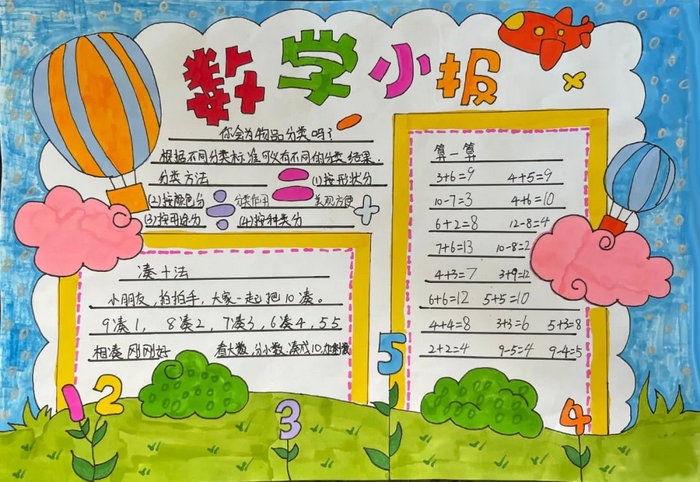 数学小报
你会为物品分类吗?
根据不同分类标准可以有不同的分类结果.
分类方法 (1)按形状分
(2)按颜色分 分类作用 美观方便
(3)按用途分 (4)按种类分
凑十法
小朋友,拍拍手,大家一起把10凑。
9凑1, 8凑2, 7凑3, 6凑4, 55
相凑刚刚好 看大数,分小数,凑成10,
算一算
3+6=9 4+5=9
10-7=3 4+6=10
6+2=8 12-8=4
7+6=13 10-8=2
4+3=7 3+9=12
6+6=12 5+5=10
4+4=8 3+3=6 5+3=8
2+2=4 9-5=4 9-4=5
1 2 3 4 5